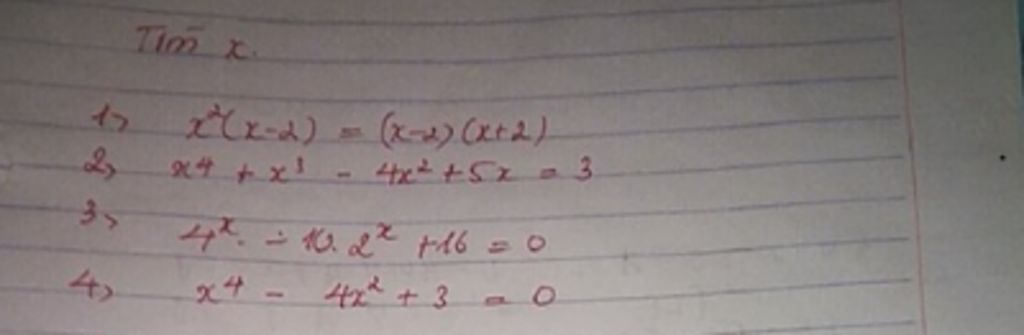 Tìm x.
1) x²(x-2) = (x-2)(x+2)
2) x⁴ + x³ - 4x² + 5x = 3
3) 4ˣ - 10.2ˣ + 16 = 0
4) x⁴ - 4x² + 3 = 0